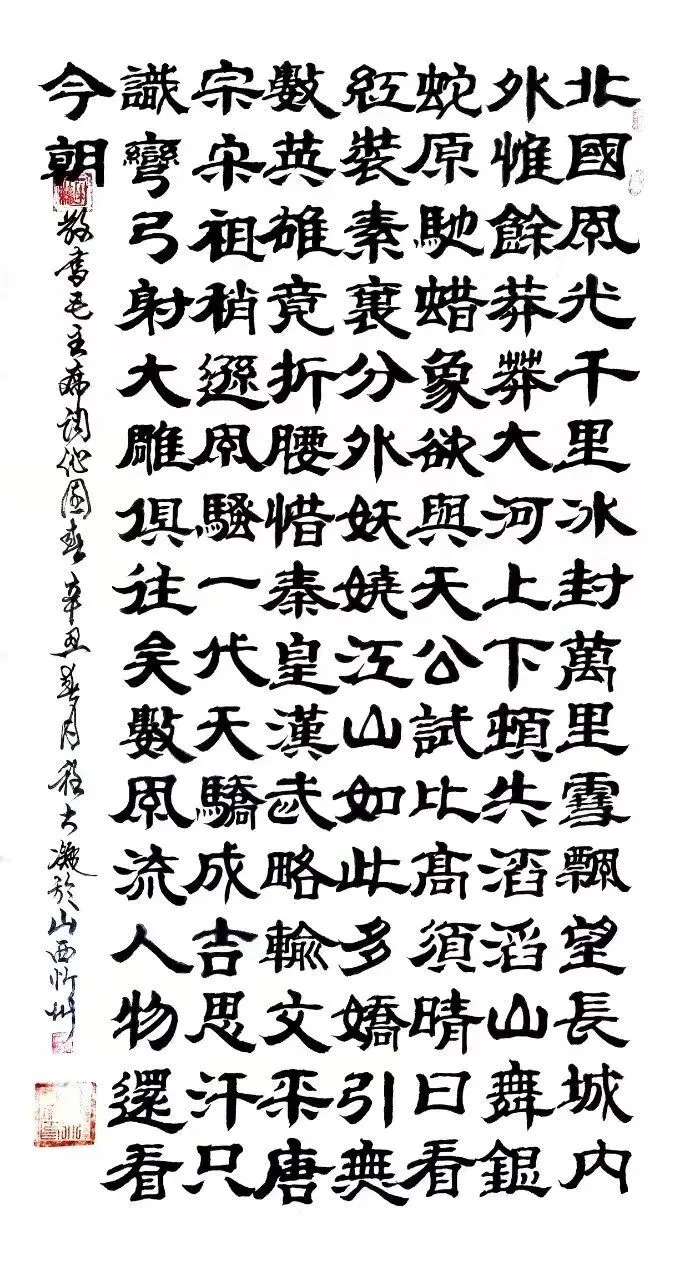 北國風光千里冰封萬里雪飄望長城內
外惟餘莽莽大河上下頓失滔滔山舞銀
蛇原馳蜡象欲與天公試比高須晴日看
紅裝素裹分外妖嬈江山如此多嬌引無
數英雄竟折腰惜秦皇漢武略輸文采唐
宗宋祖稍遜風騷一代天驕成吉思汗只
識彎弓射大雕俱往矣數風流人物還看
今朝
敬書毛主席詞沁園春 辛丑春月 程大凝於山西忻州